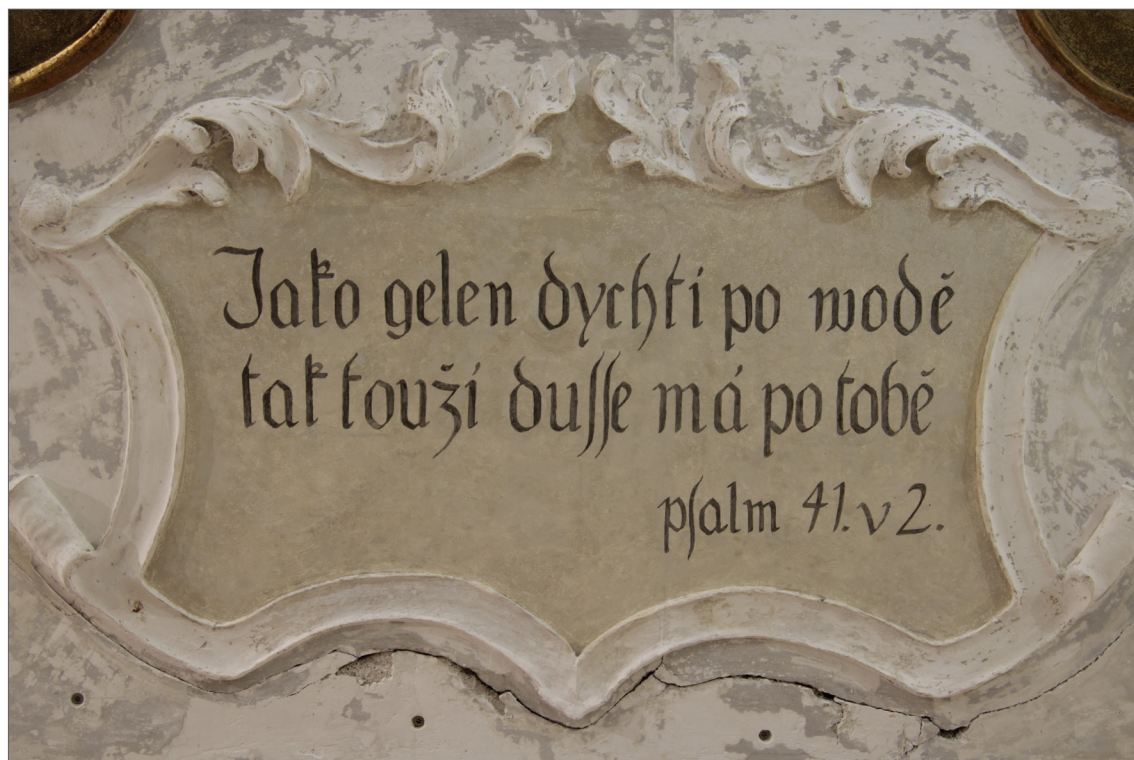 Jako gelen dychtí po wodě
tak touží duſſe má po tobě
pſalm 41. v 2.